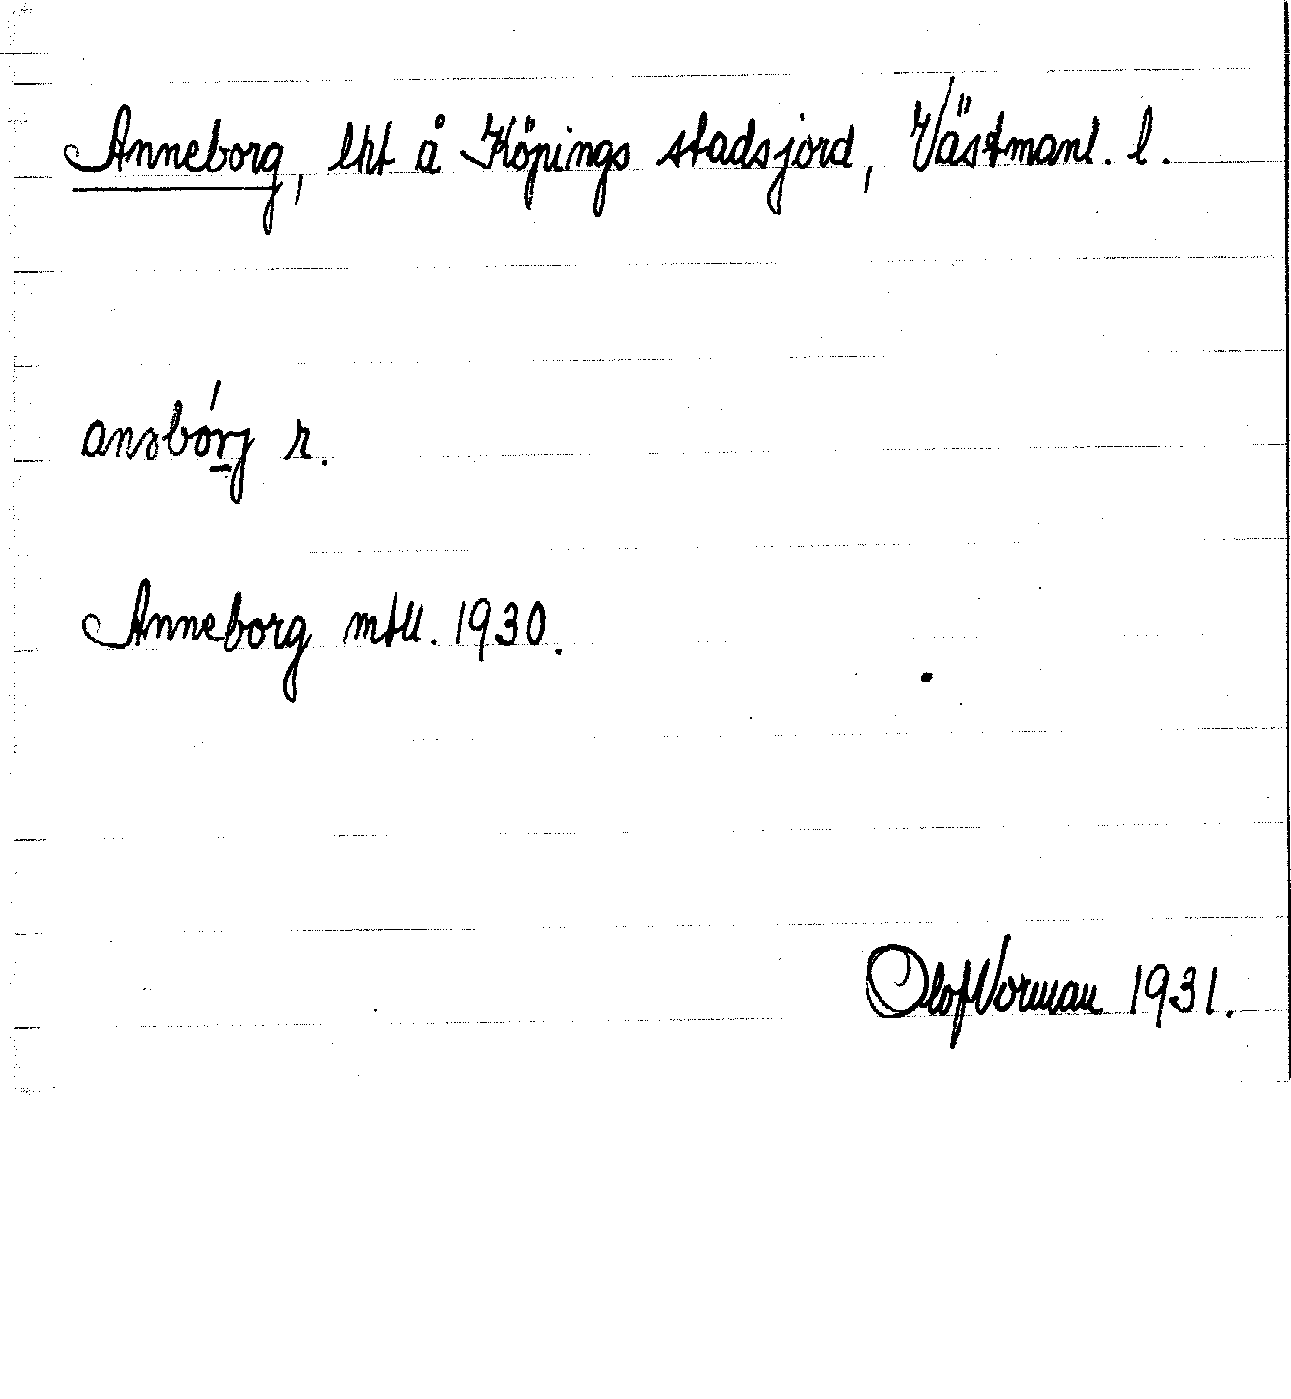 Anneborg, lht å Köpings stadsjord, Västmanl. l.
anəbórj r.
Anneborg mtll. 1930.
Olof Vorman 1931.